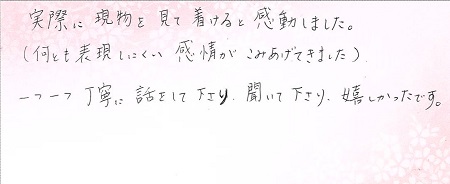 実際に現物を見て着けると感動しました。
(何とも表現しにくい感情がこみあげてきました)
一つ一つ丁寧に話をして下さり、聞いて下さり、嬉しかったです。